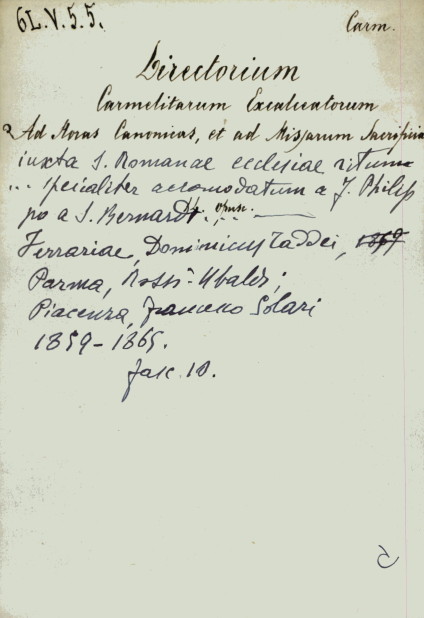 6L.V.5.5.
Carm.
Directorium
Carmelitarum Excalceatorum
Ad Horas Canonicas, et ad Missarum Sacrificia
iuxta S. Romanae ecclesiae ritum
... specialiter accomodatum a J. Philip
po a S. Bernardo. opusc.
Ferrariae, Dominicus Taddei, 1857
Parma, Rossi-Ubaldi;
Piacenza, Francesco Solari
1859-1865.
fasc. 10.